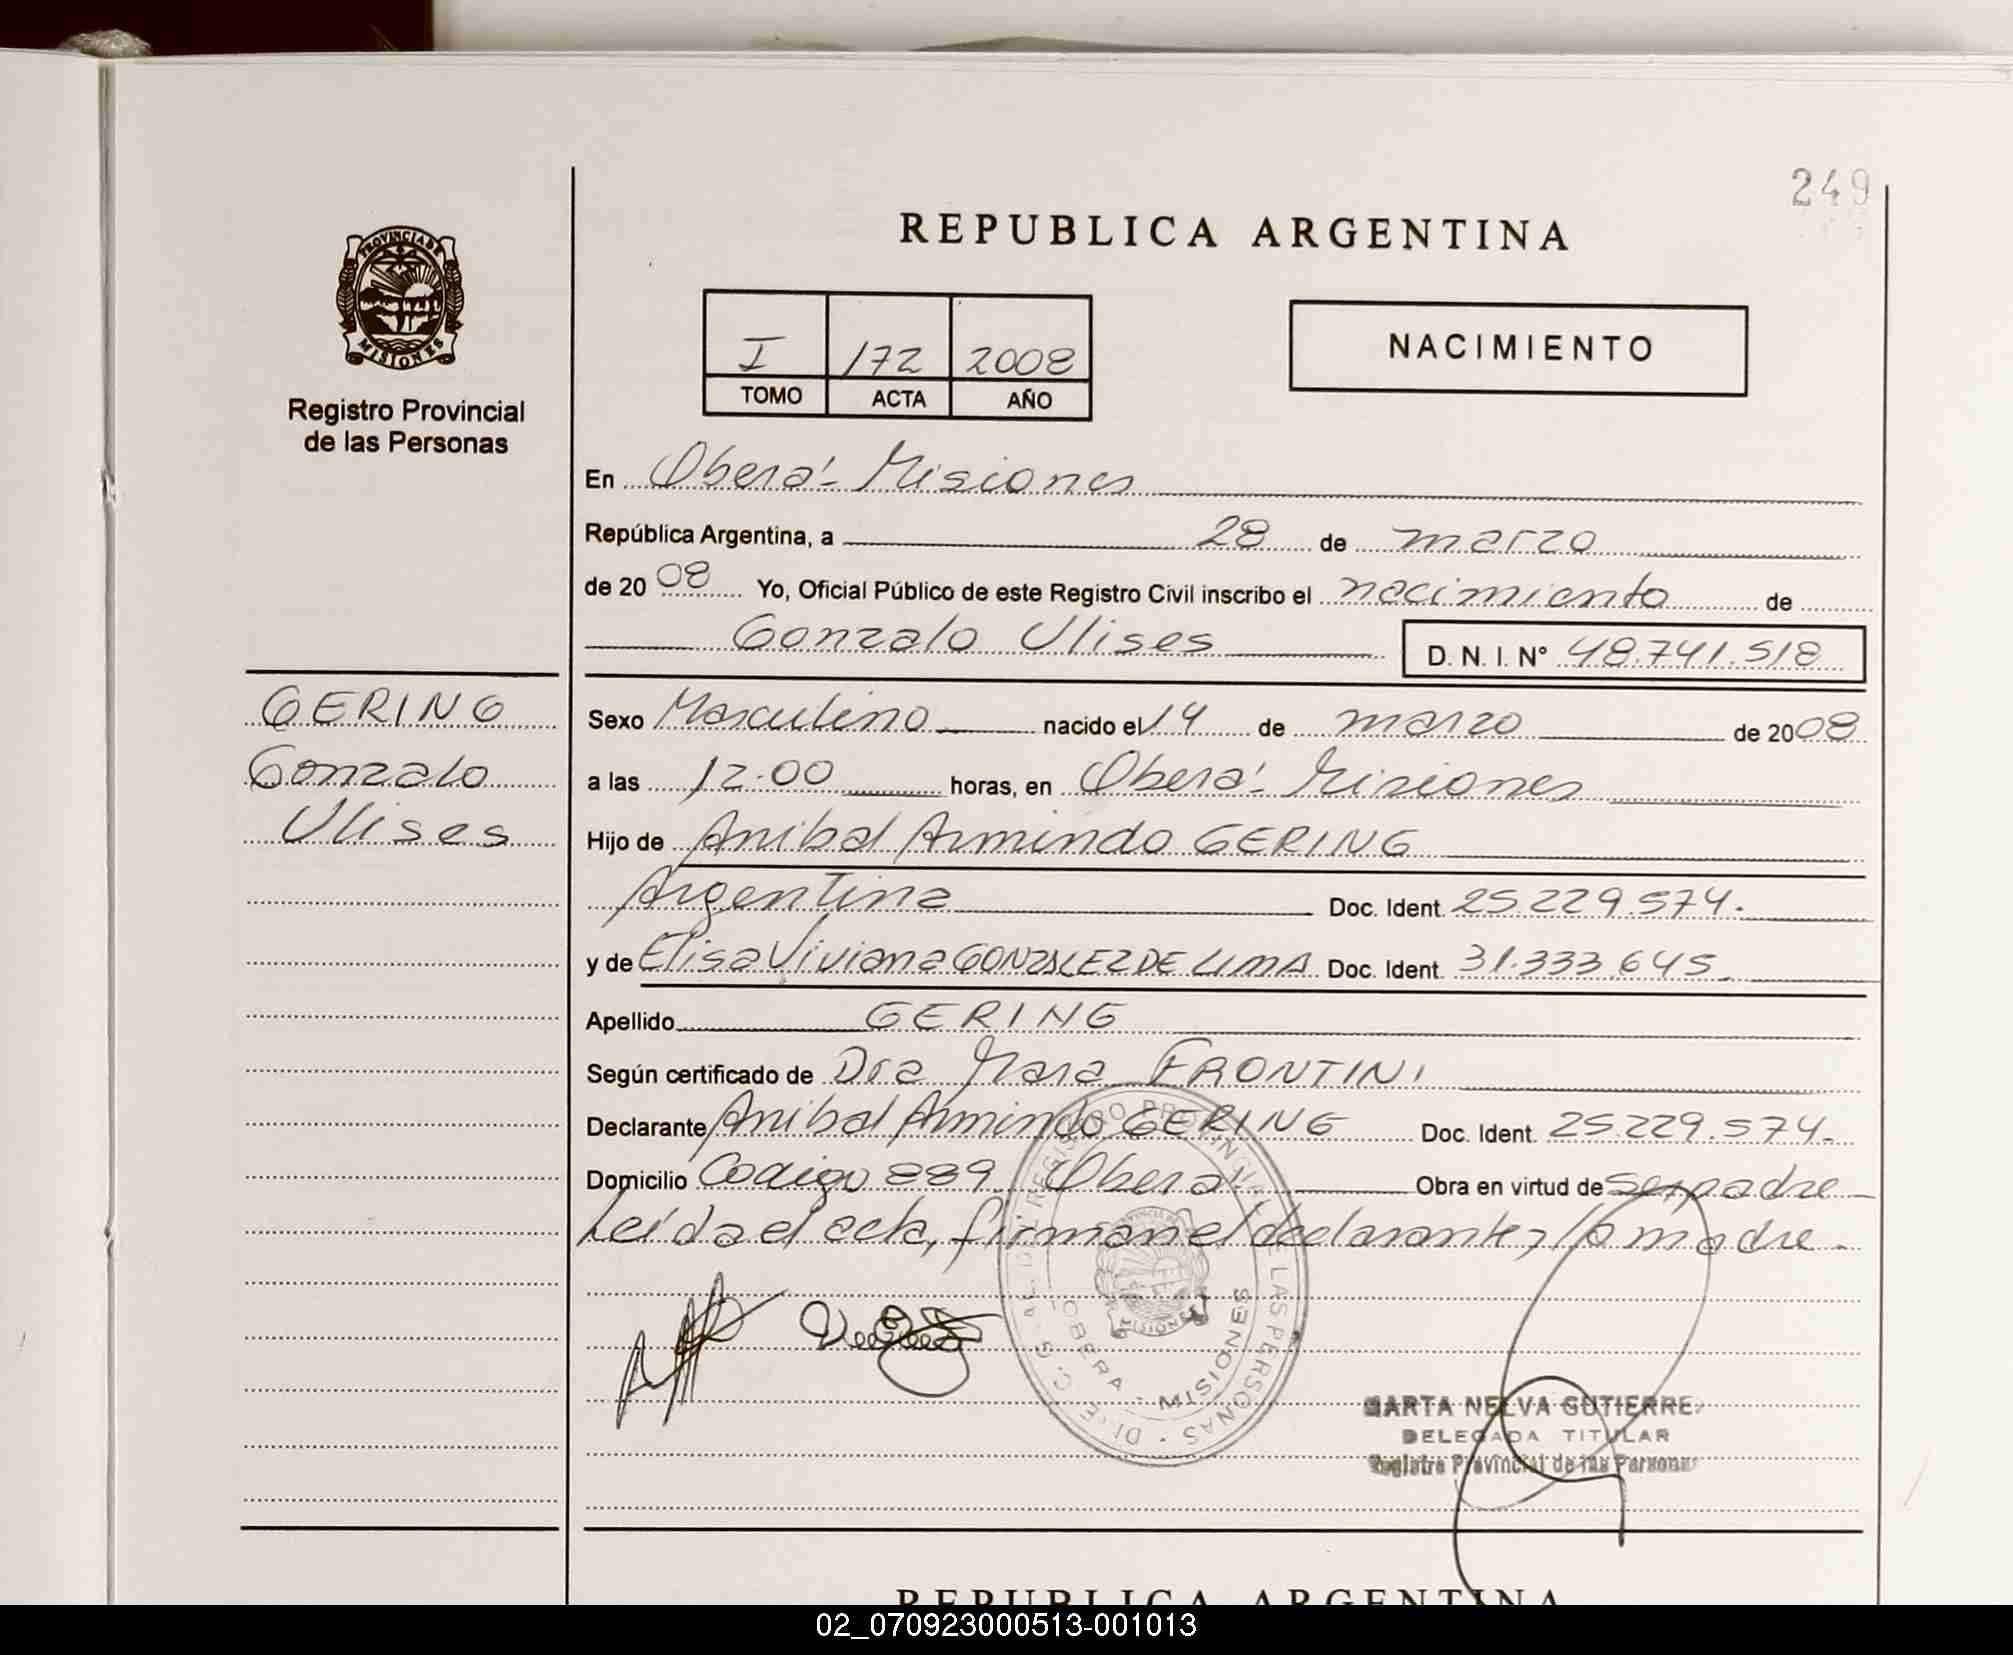 249
REPUBLICA ARGENTINA
PROVINCIA DE
MISIONES
Registro Provincial
de las Personas
I 172 2008
TOMO ACTA AÑO
NACIMIENTO
En Oberá - Misiones
República Argentina, a 28 de marzo
de 2008 Yo, Oficial Público de este Registro Civil inscribo el nacimiento de
Gonzalo Ulises D. N. I. N° 48.741.518
GERING
Gonzalo
Ulises
Sexo Masculino nacido el 14 de marzo de 2008
a las 12.00 horas, en Oberá - Misiones
Hijo de Anibal Armindo GERING
Argentina Doc. Ident. 25.229.574.
y de Elisa Viviana GONZALEZ DE LIMA Doc. Ident. 31.333.645.
Apellido GERING
Según certificado de Dra Mara FRONTINI
Declarante Anibal Armindo GERING Doc. Ident. 25.229.574.
Domicilio Codigo 889 Oberá Obra en virtud de ser padre
Leída el acta, firman el declarante y la madre.
REGISTRO PROVINCIAL DE LAS PERSONAS
OBERA - MISIONES
MARTA NELVA GUTIERREZ
DELEGADA TITULAR
Registro Provincial de las Personas
REPUBLICA ARGENTINA
02_070923000513-001013